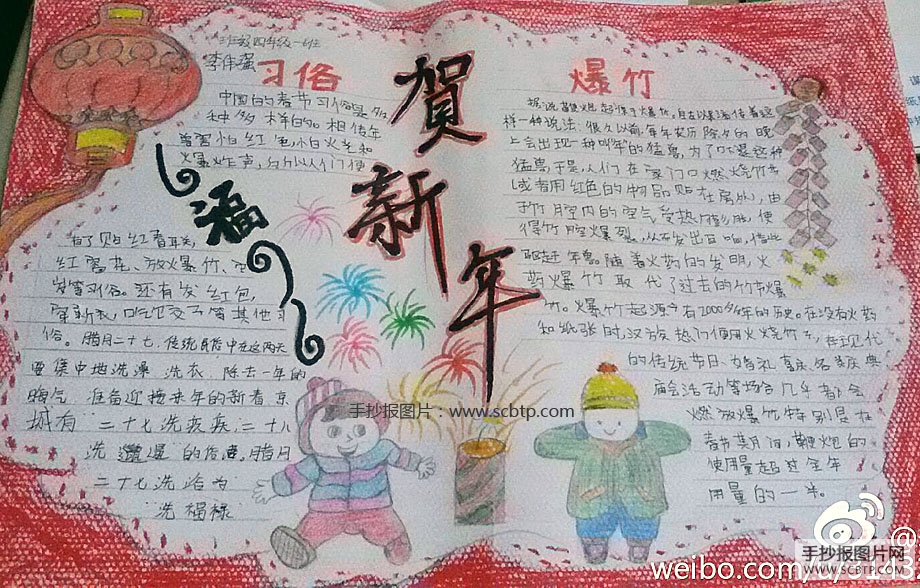 班级四年级一班
李伟强
习俗
中国的春节习俗是多
种多样的。相传年
兽害怕红色,怕火光和
爆炸声,所以人们便
福
有了贴红春联,
红窗花、放爆竹、
等习俗。还有发红包,
穿新衣,吃饺子等其他习
俗。腊月二十七,传统民俗中在这两天
要集中地洗澡、洗衣,除去一年的
晦气,准备迎接来年的新春,京
城有 二十七洗疚疾,二十八
洗邋遢 的传 。腊月
二十七洗浴为
洗福禄
賀
新
年
爆竹
据说鞭炮起源于爆竹,自古以来流传着这
样一种说法:很久以前,每年农历除夕的晚
上会出现一种叫“年”的猛兽,为了吓退这种
猛兽,于是,人们在家门口燃烧竹节
(或者用红色的物品贴在屋外),由
于竹腔内的空气受热膨胀,使
得竹腔爆裂,从而发出巨响,借此
驱赶年兽。随着火药的发明,火
药爆竹取代了过去的竹节爆
竹。爆竹起源至今有2000多年的历史。在没有火药
和纸张时,汉族 们便用火烧竹子,在现代
的传统节日、婚礼喜 、各类庆典、
庙会活动等场合几乎都会
燃放爆竹,特别是在
春节期间,鞭炮的
使用量超过全年
用量的一半。
手抄报图片:www.scbtp.com
手抄报图片网
WWW.SCBTP.COM
@
weibo.com/u/